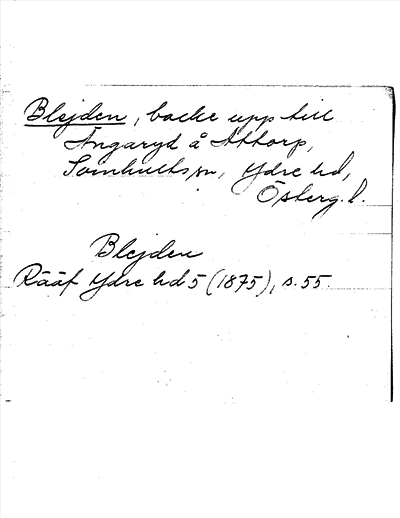 Blejden, backe upp till
Ängaryd å Attorp,
Somhults sn, Ydre hd,
Österg. l.
Blejden
Rääf Ydre hd 5 (1875), s. 55.